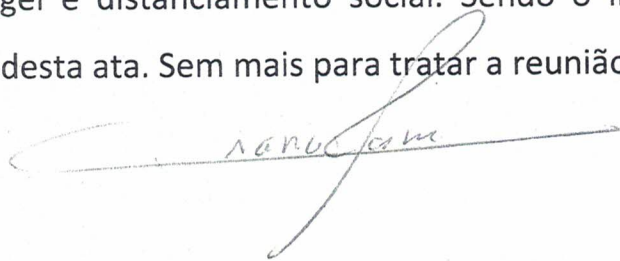 gel e distanciamento social. Sendo o
desta ata. Sem mais para tratar a reunião